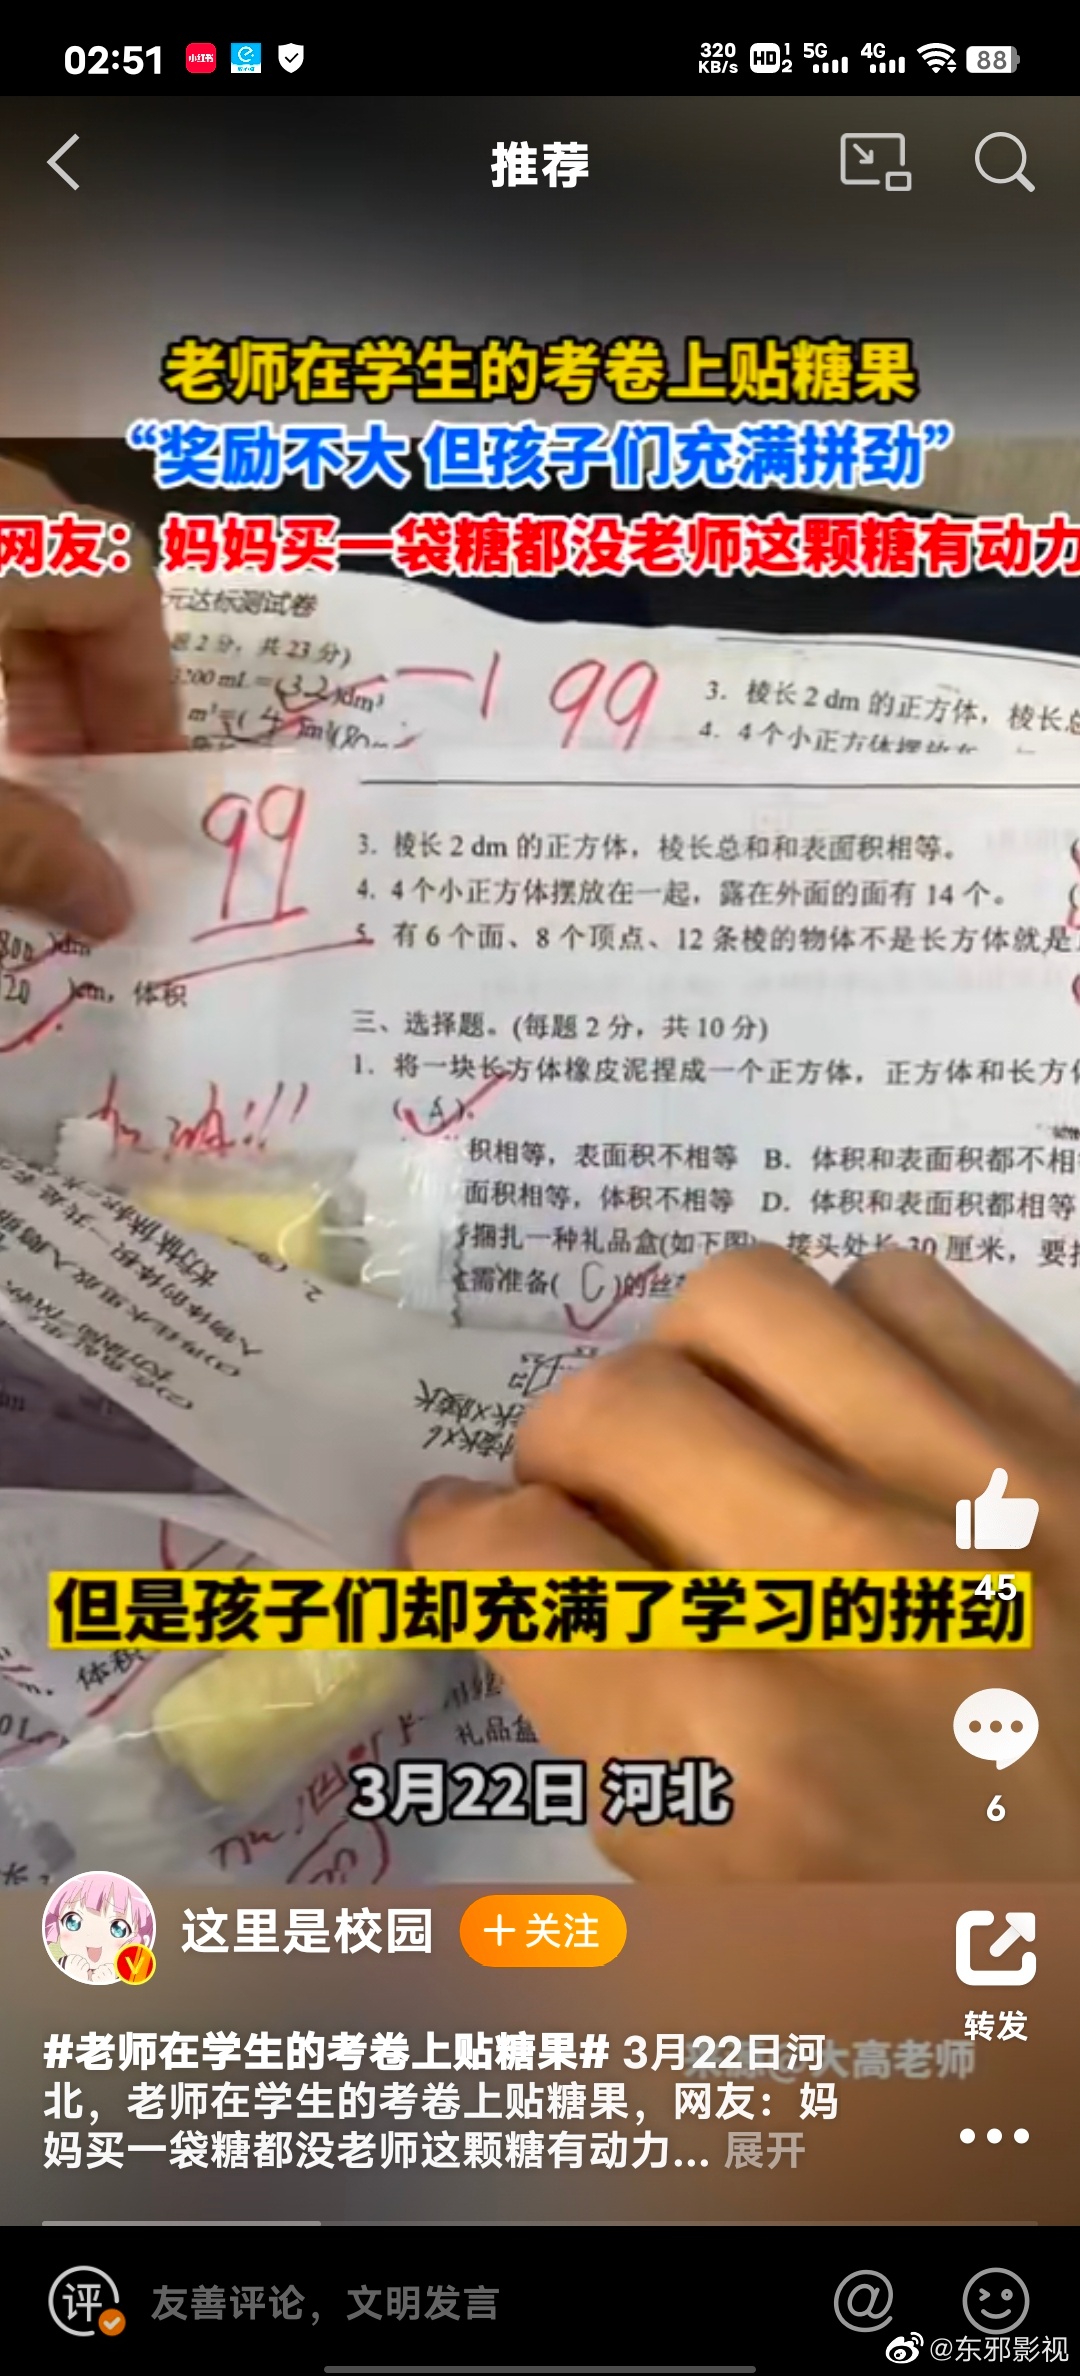 02:51
小红书
320
KB/s
HD 1 2
5G
4G
88
推荐
老师在学生的考卷上贴糖果
“奖励不大 但孩子们充满拼劲”
网友：妈妈买一袋糖都没老师这颗糖有动力
元达标测试卷
题2分，共23分)
3200 mL=(3.2)dm³
-1 99
3. 棱长2 dm的正方体，棱长总
4. 4个小正方体摆放在
99
3. 棱长2 dm的正方体，棱长总和和表面积相等。
4. 4个小正方体摆放在一起，露在外面的面有14个。
5. 有6个面、8个顶点、12条棱的物体不是长方体就是
800 )dm
120 )cm，体积
三、选择题。(每题2分，共10分)
1. 将一块长方体橡皮泥捏成一个正方体，正方体和长方体
( A )。
加油!!!
积相等，表面积不相等 B. 体积和表面积都不相
面积相等，体积不相等 D. 体积和表面积都相等
捆扎一种礼品盒(如下图)，接头处长30厘米，要
需准备( C )的丝
但是孩子们却充满了学习的拼劲
45
体积
礼品盒
3月22日 河北
6
这里是校园
+关注
转发
#老师在学生的考卷上贴糖果# 3月22日河
北，老师在学生的考卷上贴糖果，网友：妈
妈买一袋糖都没老师这颗糖有动力... 展开
大高老师
评
友善评论，文明发言
@东邪影视